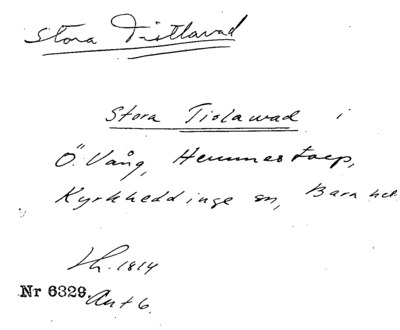 Stora Tistlavad
Stora Tislawad i
Ö. Vång, Hemmestorp,
Kyrkheddinge sn, Bara hd.
Lh. 1814
Nr 6329. Ant 6.